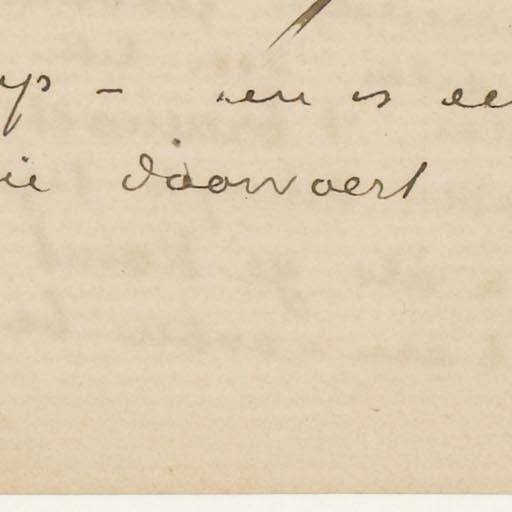 yp – en is ee
ie doorvoert